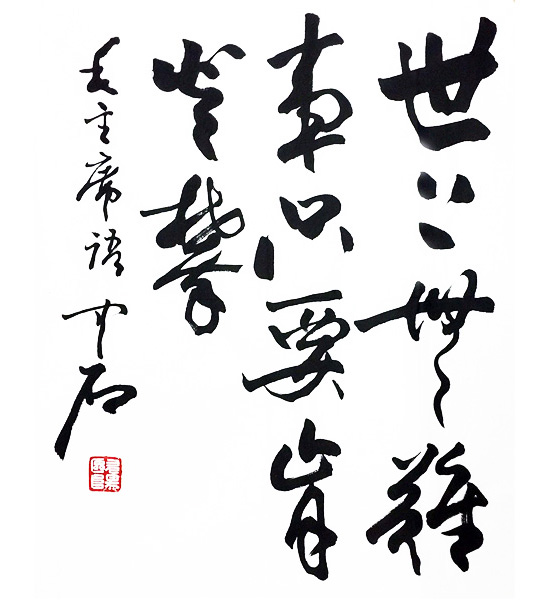 世上無難
事只要肯
登攀
毛主席語 中石